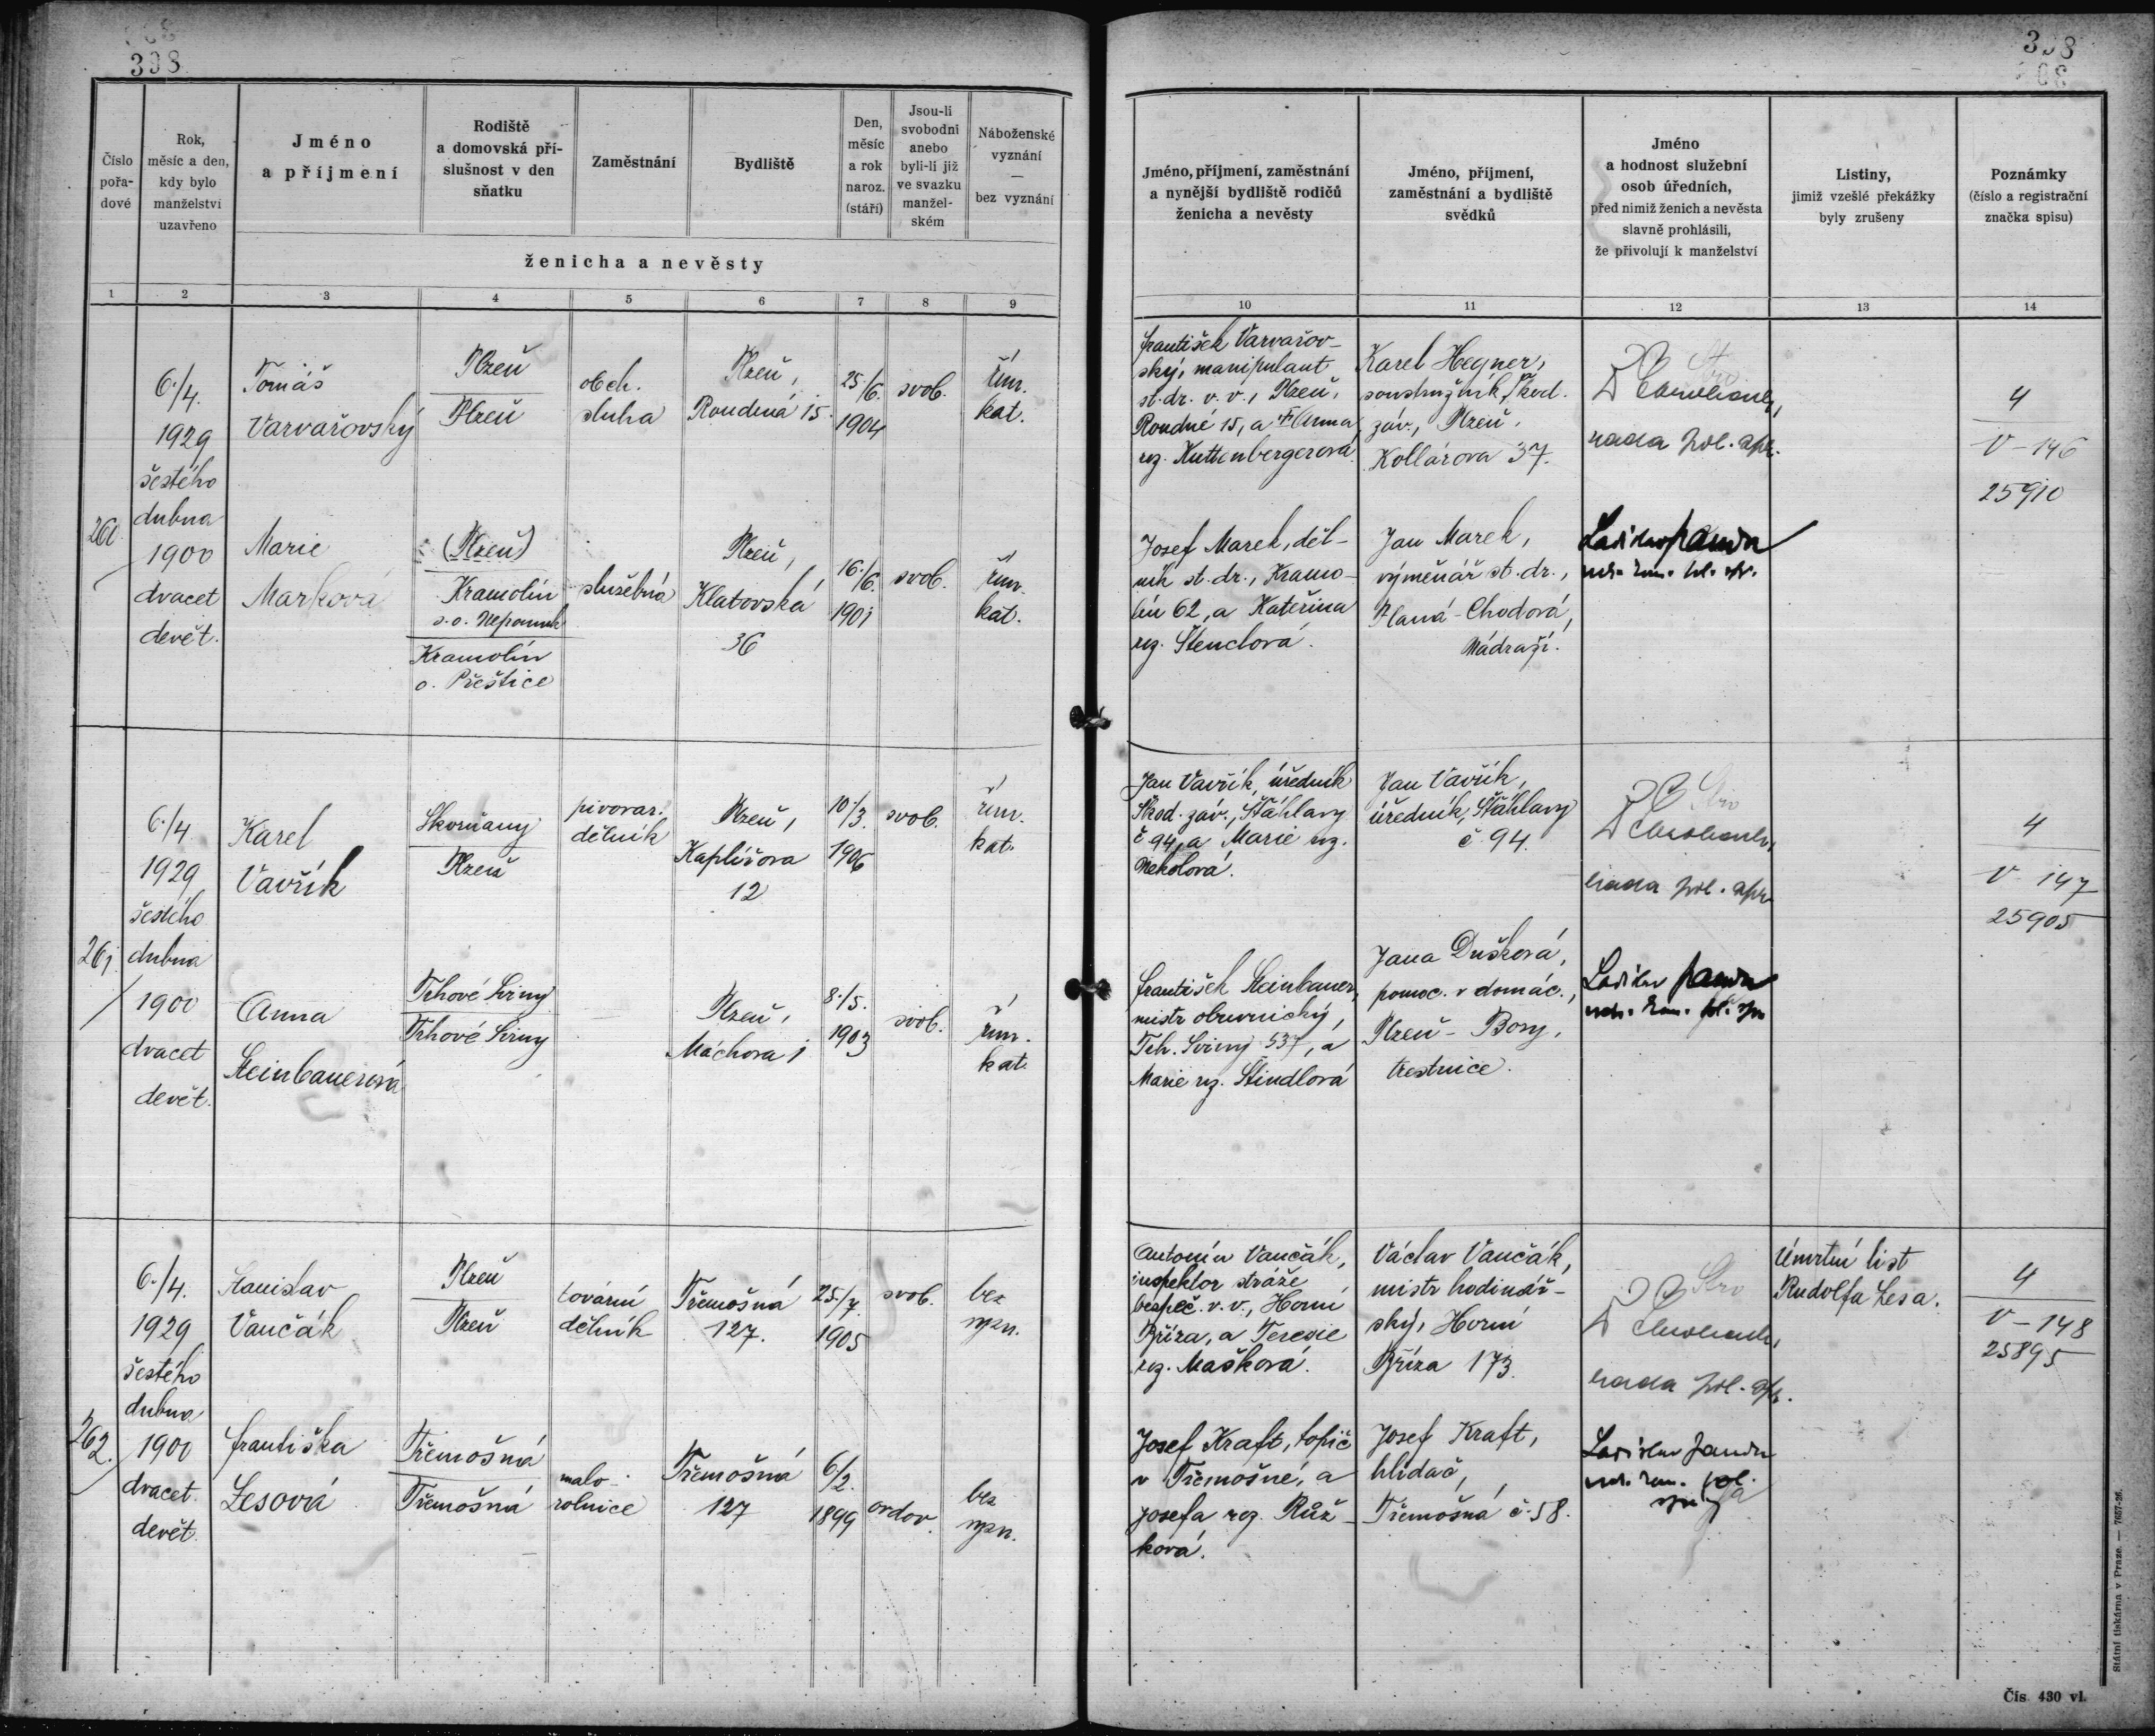 308
308
Číslo pořa- dové
Rok, měsíc a den, kdy bylo manželství uzavřeno
Jméno a příjmení
Rodiště a domovská pří- slušnost v den sňatku
Zaměstnání
Bydliště
Den, měsíc a rok naroz. (stáří)
Jsou-li svobodni anebo byli-li již ve svazku manžel- ském
Náboženské vyznání — bez vyznání
ženicha a nevěsty
Jméno, příjmení, zaměstnání a nynější bydliště rodičů ženicha a nevěsty
Jméno, příjmení, zaměstnání a bydliště svědků
Jméno a hodnost služební osob úředních, před nimiž ženich a nevěsta slavně prohlásili, že přivolují k manželství
Listiny, jimiž vzešlé překážky byly zrušeny
Poznámky (číslo a registrační značka spisu)
1 2 3 4 5 6 7 8 9 10 11 12 13 14
260
6./4.
1929
šestého
dubna
1900
dvacet
devět.
Tomáš
Varvařovský
Plzeň
Plzeň
obch.
sluha
Plzeň,
Roudná 15.
25./6.
1904
svob.
řím.
kat.
František Varvařov-
ský, manipulant
st. dr. v. v., Plzeň,
Roudné 15, a Anna
roz. Kuttenbergerová
Karel Hegner,
soustružník Škod.
záv., Plzeň,
Kollárova 37.
rada pol. spr.
4
V-146
25910
Marie
Marková
(Plzeň)
Kramolín
s. o. Nepomuk
Kramolín
o. Přeštice
služebná
Plzeň,
Klatovská
36
16./6.
1901
svob.
řím.
kat.
Josef Marek, děl-
ník st. dr., Kramo-
lín 62, a Kateřina
roz. Štenclová.
Jan Marek,
výměnář st. dr.,
Planá-Chodová,
Nádraží.
Ladislav Janda
261.
6./4
1929
šestého
dubna
1900
dvacet
devět.
Karel
Vavřík
Skvrňany
Plzeň
pivovar.
dělník
Plzeň,
Kaplířova
12
10./3.
1906
svob.
řím.
kat.
Jan Vavřík, úředník
Škod. záv., Šťáhlavy
č 94, a Marie roz.
Nekolová.
Jan Vavřík,
úředník, Šťáhlavy
č 94.
rada pol. spr.
4
V-147
25905
Anna
Steinbauerová
Trhové Sviny
Trhové Sviny
Plzeň,
Máchova 1
8./5.
1903
svob.
řím.
kat.
František Steinbauer,
mistr obuvnický,
Trh. Sviny 537, a
Marie roz. Štindlová
Jana Dušková,
pomoc. v domác.,
Plzeň - Bory,
trestnice.
Ladislav Janda
262.
6./4.
1929
šestého
dubna
1900
dvacet
devět.
Stanislav
Vančák
Plzeň
Plzeň
tovární
dělník
Třemošná
127.
25./7.
1905
svob.
bez
vyzn.
Antonín Vančák,
inspektor stráže
bezpeč. v. v., Horní
Bříza, a Terezie
roz. Mašková.
Václav Vančák,
mistr hodinář-
ský, Horní
Bříza 173.
rada pol. spr.
Úmrtní list
Rudolfa Lesa.
4
V-148
25895
Františka
Lesová
Třemošná
Třemošná
malo-
rolnice
Třemošná
127
6./2.
1899
ovdov.
bez
vyzn.
Josef Kraft, topič
v Třemošné, a
Josefa roz. Růž-
ková.
Josef Kraft,
hlídač,
Třemošná č. 58.
Ladislav Janda
Státní tiskárna v Praze. — 7657-26.
Čís. 430 vl.